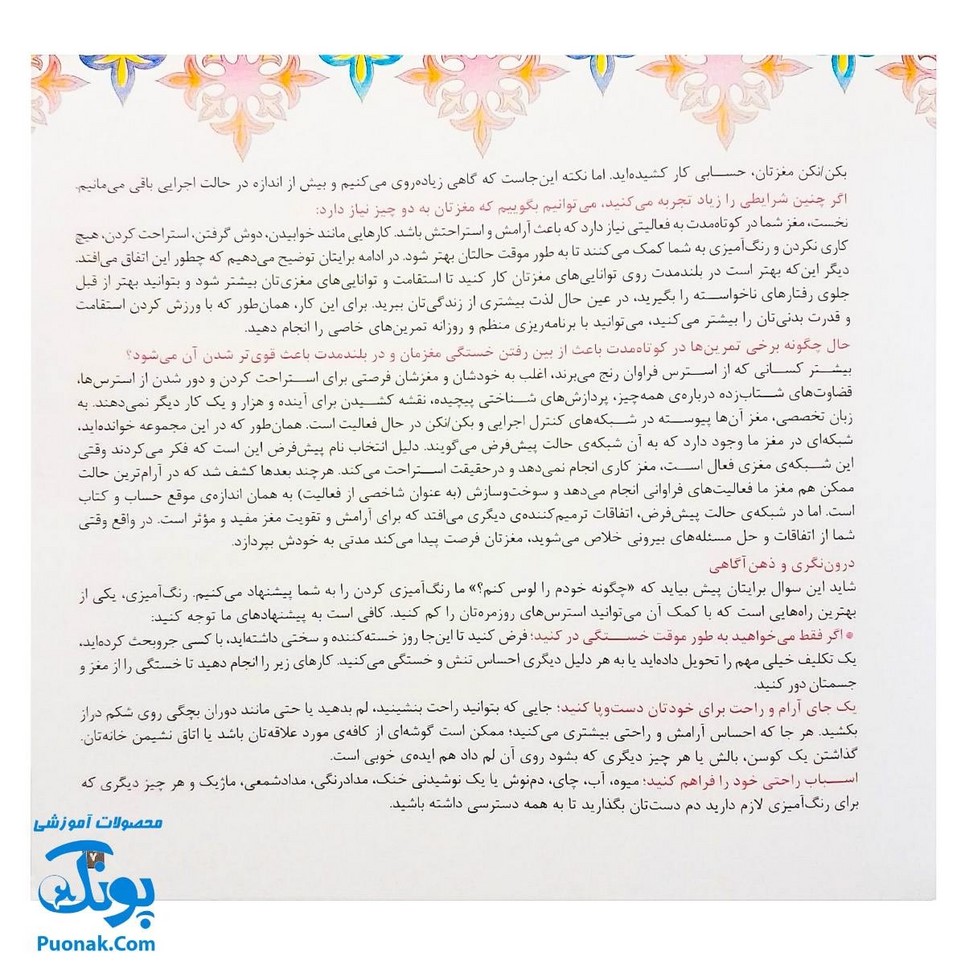 بکن/نکن مغزتان، حسابی کار کشیده‌اید. اما نکته این‌جاست که گاهی زیاده‌روی می‌کنیم و بیش از اندازه در حالت اجرایی باقی می‌مانیم.
اگر چنین شرایطی را زیاد تجربه می‌کنید، می‌توانیم بگوییم که مغزتان به دو چیز نیاز دارد:
نخست، مغز شما در کوتاه‌مدت به فعالیتی نیاز دارد که باعث آرامش و استراحتش باشد. کارهایی مانند خوابیدن، دوش گرفتن، استراحت کردن، هیچ
کاری نکردن و رنگ‌آمیزی به شما کمک می‌کنند تا به طور موقت حالتان بهتر شود. در ادامه برایتان توضیح می‌دهیم که چطور این اتفاق می‌افتد.
دیگر این‌که بهتر است در بلندمدت روی توانایی‌های مغزتان کار کنید تا استقامت و توانایی‌های مغزی‌تان بیشتر شود و بتوانید بهتر از قبل
جلوی رفتارهای ناخواسته را بگیرید، در عین حال لذت بیشتری از زندگی‌تان ببرید. برای این کار، همان‌طور که با ورزش کردن استقامت
و قدرت بدنی‌تان را بیشتر می‌کنید، می‌توانید با برنامه‌ریزی منظم و روزانه تمرین‌های خاصی را انجام دهید.
حال چگونه برخی تمرین‌ها در کوتاه‌مدت باعث از بین رفتن خستگی مغزمان و در بلندمدت باعث قوی‌تر شدن آن می‌شود؟
بیشتر کسانی که از استرس فراوان رنج می‌برند، اغلب به خودشان و مغزشان فرصتی برای استراحت کردن و دور شدن از استرس‌ها،
قضاوت‌های شتاب‌زده درباره‌ی همه‌چیز، پردازش‌های شناختی پیچیده، نقشه کشیدن برای آینده و هزار و یک کار دیگر نمی‌دهند. به
زبان تخصصی، مغز آن‌ها پیوسته در شبکه‌های کنترل اجرایی و بکن/نکن در حال فعالیت است. همان‌طور که در این مجموعه خوانده‌اید،
شبکه‌ای در مغز ما وجود دارد که به آن شبکه‌ی حالت پیش‌فرض می‌گویند. دلیل انتخاب نام پیش‌فرض این است که فکر می‌کردند وقتی
این شبکه‌ی مغزی فعال است، مغز کاری انجام نمی‌دهد و درحقیقت استراحت می‌کند. هرچند بعدها کشف شد که در آرام‌ترین حالت
ممکن هم مغز ما فعالیت‌های فراوانی انجام می‌دهد و سوخت‌وسازش (به عنوان شاخصی از فعالیت) به همان اندازه‌ی موقع حساب و کتاب
است. اما در شبکه‌ی حالت پیش‌فرض، اتفاقات ترمیم‌کننده‌ی دیگری می‌افتد که برای آرامش و تقویت مغز مفید و مؤثر است. در واقع وقتی
شما از اتفاقات و حل مسئله‌های بیرونی خلاص می‌شوید، مغزتان فرصت پیدا می‌کند مدتی به خودش بپردازد.
درون‌نگری و ذهن‌آگاهی
شاید این سوال برایتان پیش بیاید که «چگونه خودم را لوس کنم؟» ما رنگ‌آمیزی کردن را به شما پیشنهاد می‌کنیم. رنگ‌آمیزی، یکی از
بهترین راه‌هایی است که با کمک آن می‌توانید استرس‌های روزمره‌تان را کم کنید. کافی است به پیشنهادهای ما توجه کنید:
* اگر فقط می‌خواهید به طور موقت خستگی در کنید؛ فرض کنید تا این‌جا روز خسته‌کننده و سختی داشته‌اید، با کسی جروبحث کرده‌اید،
یک تکلیف خیلی مهم را تحویل داده‌اید یا به هر دلیل دیگری احساس تنش و خستگی می‌کنید. کارهای زیر را انجام دهید تا خستگی را از مغز و
جسمتان دور کنید.
یک جای آرام و راحت برای خودتان دست‌وپا کنید؛ جایی که بتوانید راحت بنشینید، لم بدهید یا حتی مانند دوران بچگی روی شکم دراز
بکشید. هر جا که احساس آرامش و راحتی بیشتری می‌کنید؛ ممکن است گوشه‌ای از کافه‌ی مورد علاقه‌تان باشد یا اتاق نشیمن خانه‌تان.
گذاشتن یک کوسن، بالش یا هر چیز دیگری که بشود روی آن لم داد هم ایده‌ی خوبی است.
اسباب راحتی خود را فراهم کنید؛ میوه، آب، چای، دم‌نوش یا یک نوشیدنی خنک، مدادرنگی، مدادشمعی، ماژیک و هر چیز دیگری که
برای رنگ‌آمیزی لازم دارید دم دست‌تان بگذارید تا به همه دسترسی داشته باشید.
محصولات آموزشی
۷
پونک
Puonak.Com